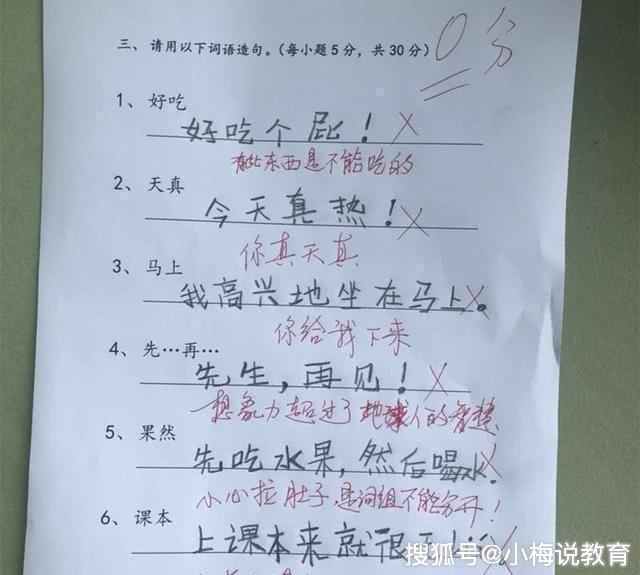 三、请用以下词语造句。(每小题5分，共30分)
0分
1、好吃
好吃个屁！
有些东西是不能吃的
2、天真
今天真热！
你真天真
3、马上
我高兴地坐在马上。
你给我下来
4、先…再…
先生，再见！
想象力超过了地球人的智慧
5、果然
先吃水果，然后喝水.
小心拉肚子，是词组不能分开！
6、课本
上课本来就很
搜狐号@小梅说教育